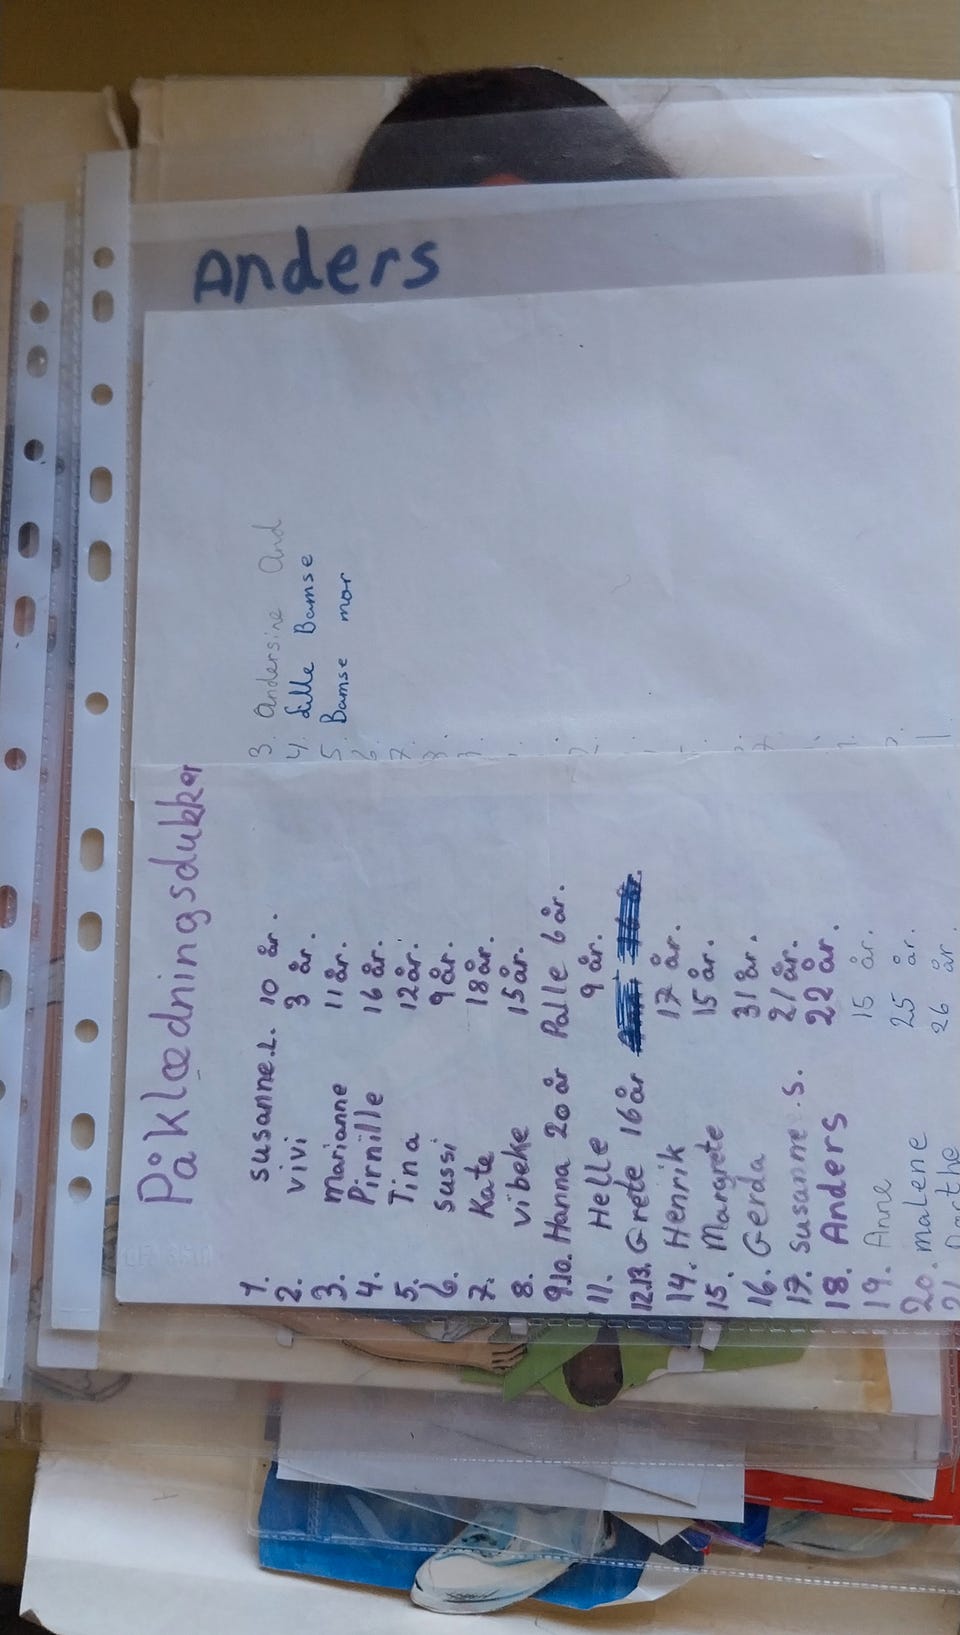 Anders
Påklædningsdukker
1. Susanne.L. 10 år.
2. Vivi 3 år.
3. Marianne 11 år.
4. Pirnille 16 år.
5. Tina 12 år.
6. Sussi 9 år.
7. Kate 18 år.
8. Vibeke 15 år.
9.10. Hanna 20 år Palle 6 år.
11. Helle 9 år.
12.13. Grete 16 år
14. Henrik 17 år.
15. Margrete 15 år.
16. Gerda 31 år.
17. Susanne.S. 21 år.
18. Anders 22 år.
19. Anne 15 år.
20. malene 25 år.
21. 26 år.
3. Andersine And
4. Lille Bamse
5. Bamse mor
6.
7.